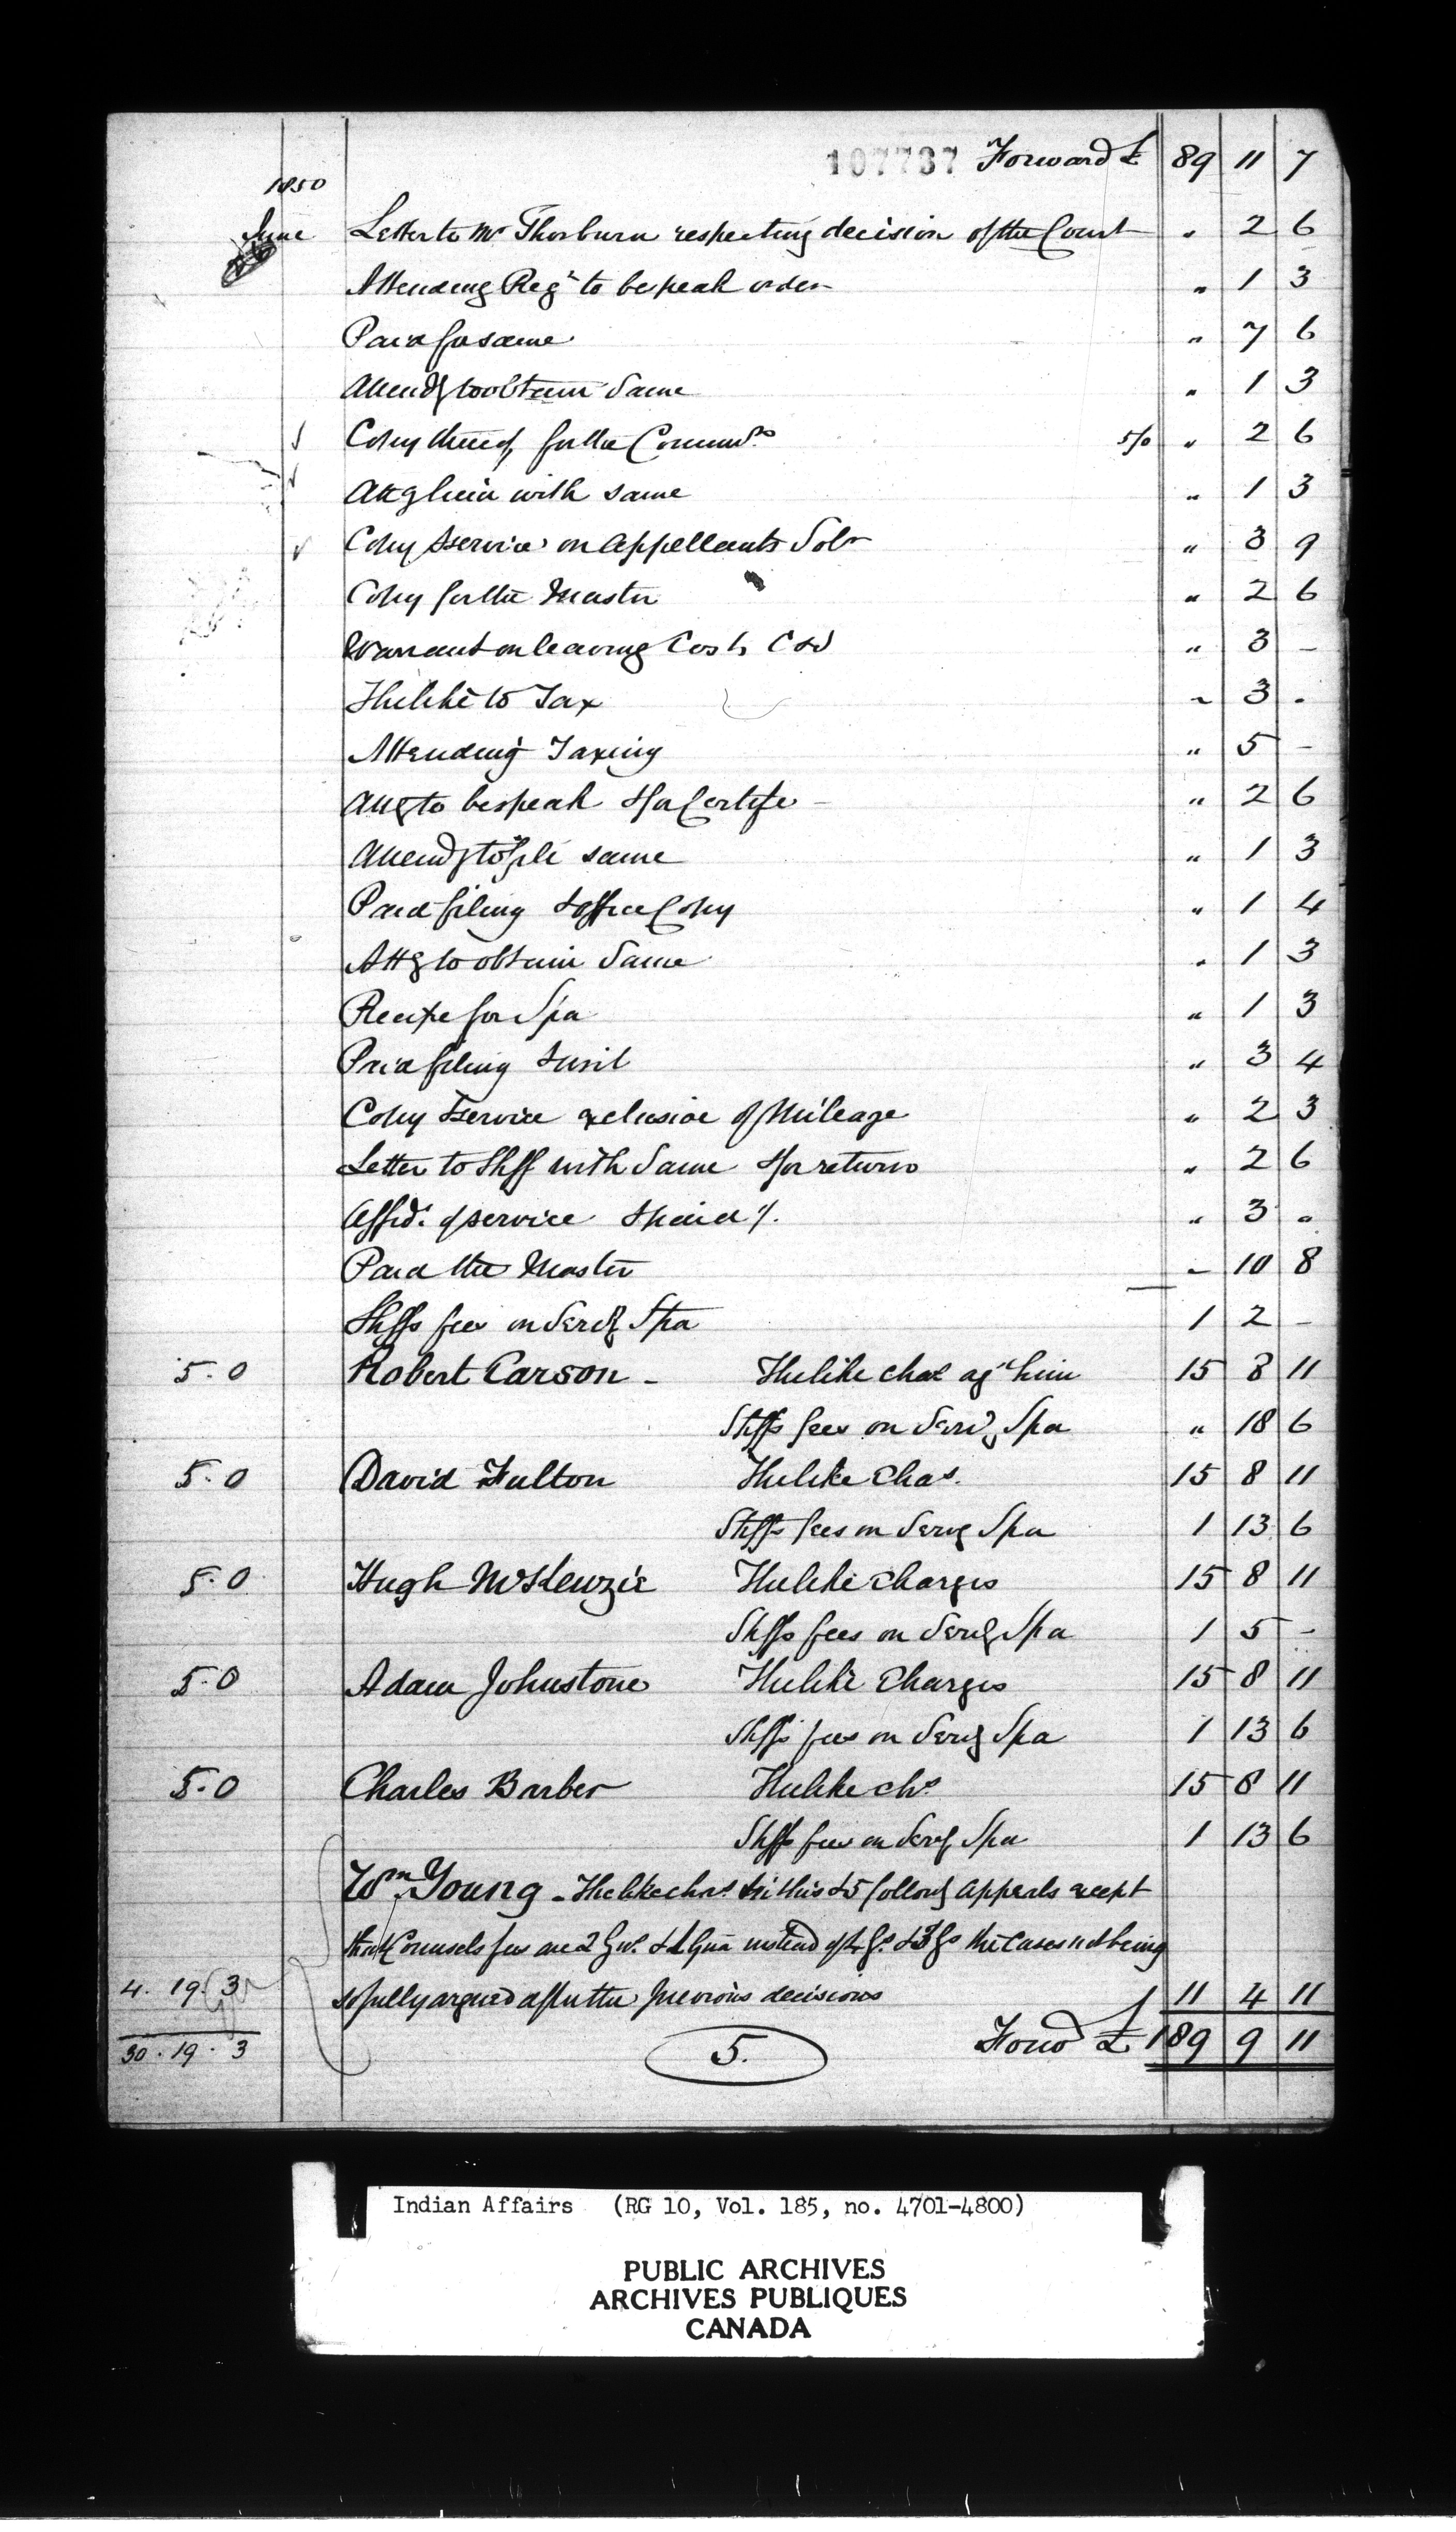 107737 Forward £ 89 11 7
1850
June Letter to Mr Thorburn respecting decision of the Court " 2 6
Attending Regr to bespeak order " 1 3
Paid for same " 7 6
Attendg to obtain Same " 1 3
Copy thereof for the Commrs 5/0 " 2 6
Attg him with same " 1 3
Copy & service on Appellants Solr " 3 9
Copy for the Master " 2 6
Warrant on leaving Costs C & S " 3 -
The like to Tax " 3 -
Attending Taxing " 5 -
Attg to bespeak & for Certife " 2 6
Attendg to file same " 1 3
Paid filing & office Copy " 1 4
Attg to obtain Same " 1 3
Precipe for Spa " 1 3
Paid filing & writ " 3 4
Copy & service exclusive of Mileage " 2 3
Letter to Shff with Same & for return " 2 6
Affidt of service & paid /. " 3 "
Paid the Master " 10 8
Shffs fees on Servg Spa 1 2 -
5.0 Robert Carson - The like chas agt him 15 8 11
Shffs fees on Servg Spa " 18 6
5.0 David Fulton The like Chas. 15 8 11
Shffs fees on Servg Spa 1 13 6
5.0 Hugh McKenzie The like Charges 15 8 11
Shffs fees on Servg Spa 1 5 -
5.0 Adam Johnstone The like Charges 15 8 11
Shffs fees on Servg Spa 1 13 6
5.0 Charles Barber The like chs 15 8 11
Shffs fees on Servg Spa 1 13 6
Wm Young - The like chas in this & 5 followg Appeals except
that Counsels fees are 2 Gns. & 1 Gua instead of 4 Gs. & 3 Gs the Cases not being
4. 19. 3 so fully argued after the previous decisions 11 4 11
30. 19. 3 5. Forwd £ 189 9 11
Indian Affairs (RG 10, Vol. 185, no. 4701-4800)
PUBLIC ARCHIVES
ARCHIVES PUBLIQUES
CANADA